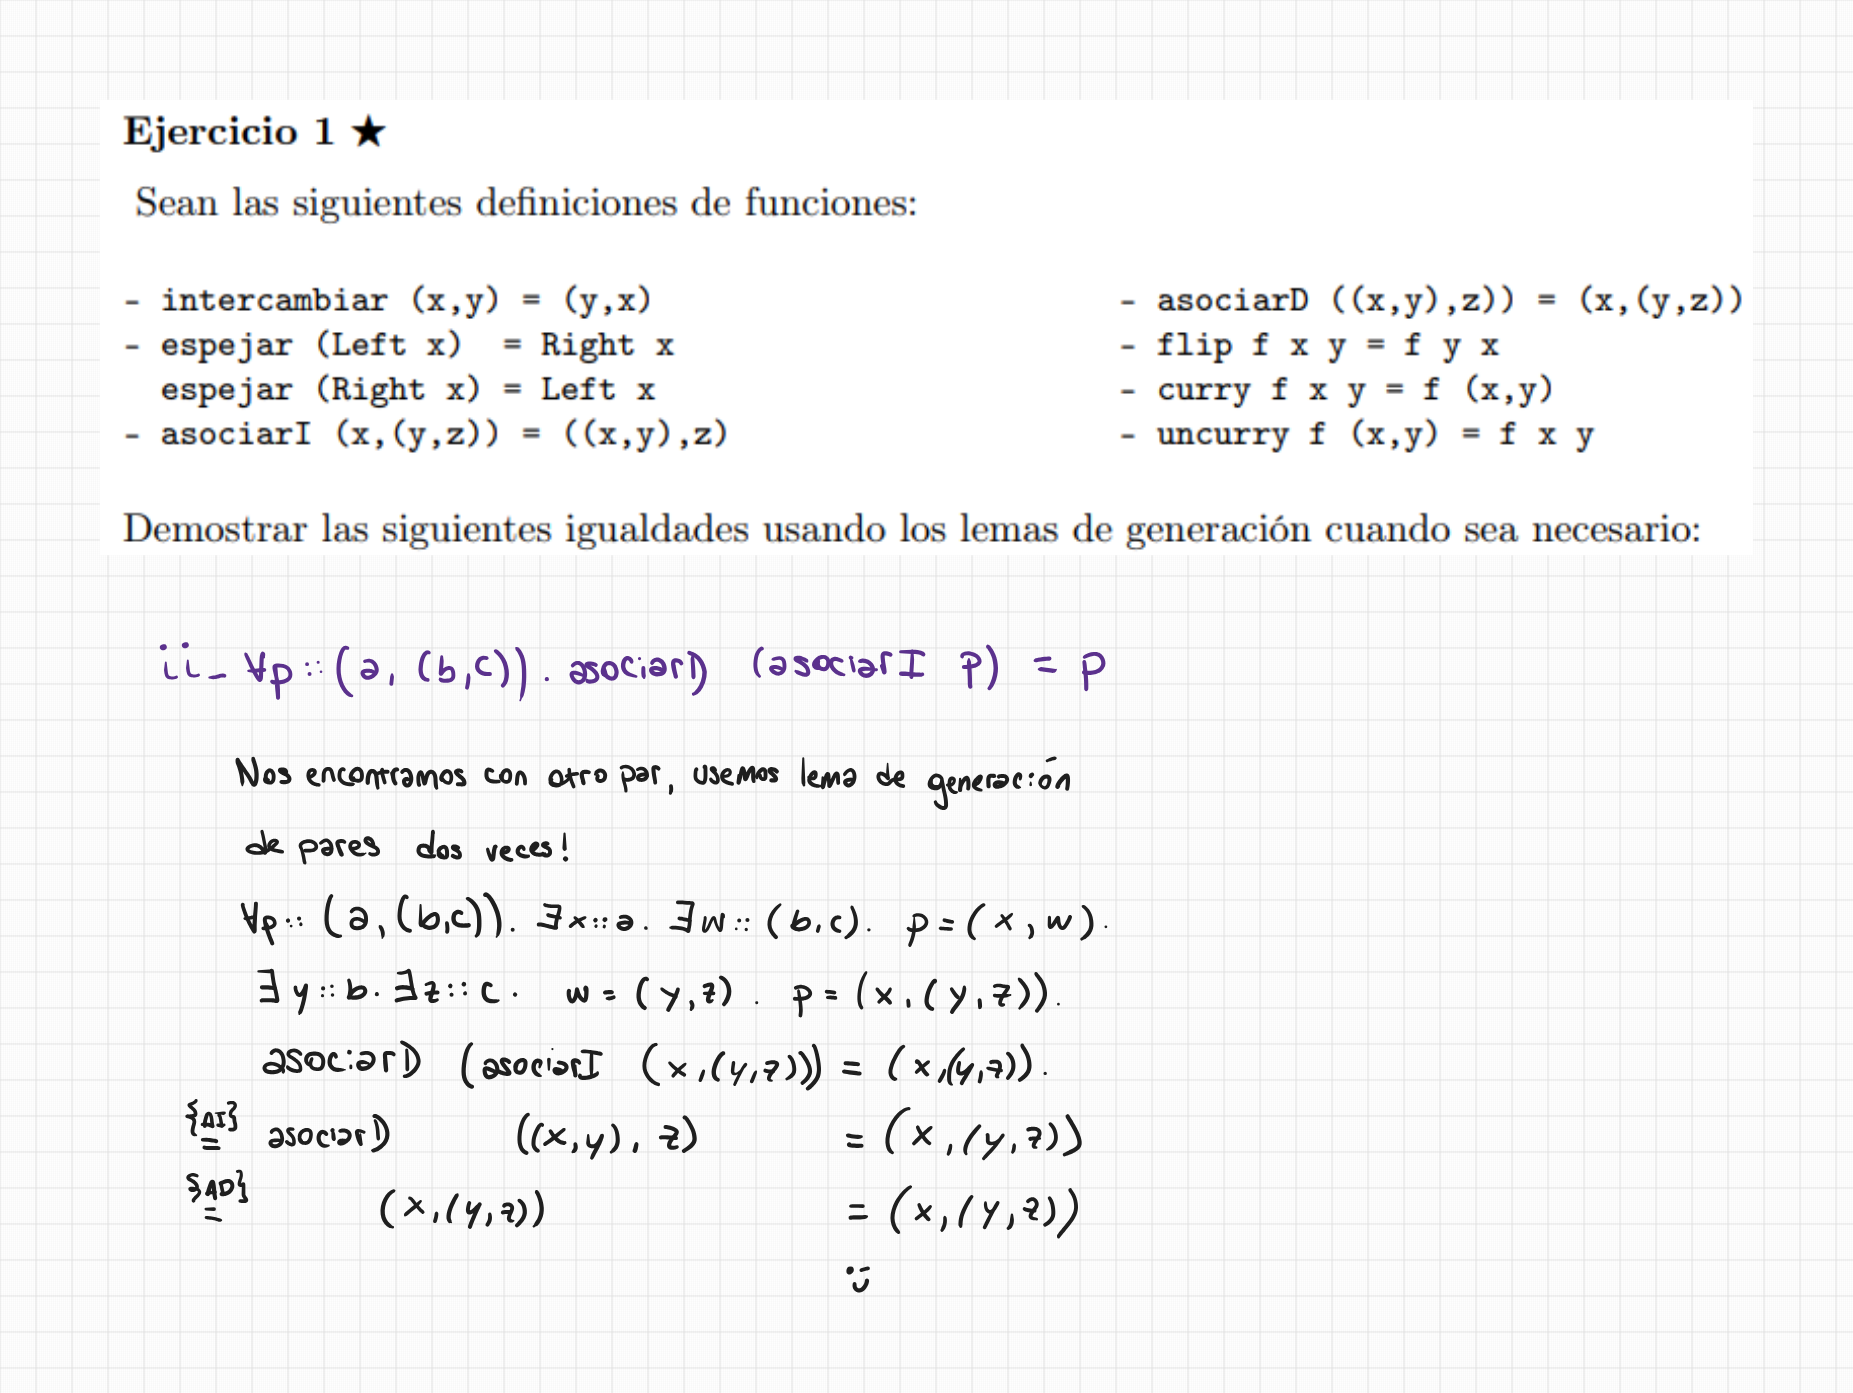 Ejercicio 1 ★
Sean las siguientes definiciones de funciones:
- intercambiar (x,y) = (y,x)
- espejar (Left x) = Right x
espejar (Right x) = Left x
- asociarI (x,(y,z)) = ((x,y),z)
- asociarD ((x,y),z)) = (x,(y,z))
- flip f x y = f y x
- curry f x y = f (x,y)
- uncurry f (x,y) = f x y
Demostrar las siguientes igualdades usando los lemas de generación cuando sea necesario:
ii_ ∀p::(a, (b,c)). asociarD (asociarI p) = p
Nos encontramos con otro par, usemos lema de generación
de pares dos veces!
∀p:: (a,(b,c)). ∃x::a. ∃w::(b,c). p=(x,w).
∃y::b. ∃z::c. w=(y,z). p=(x,(y,z)).
asociarD (asociarI (x,(y,z))) = (x,(y,z)).
{AI}
= asociarD ((x,y),z) = (x,(y,z))
{AD}
= (x,(y,z)) = (x,(y,z))